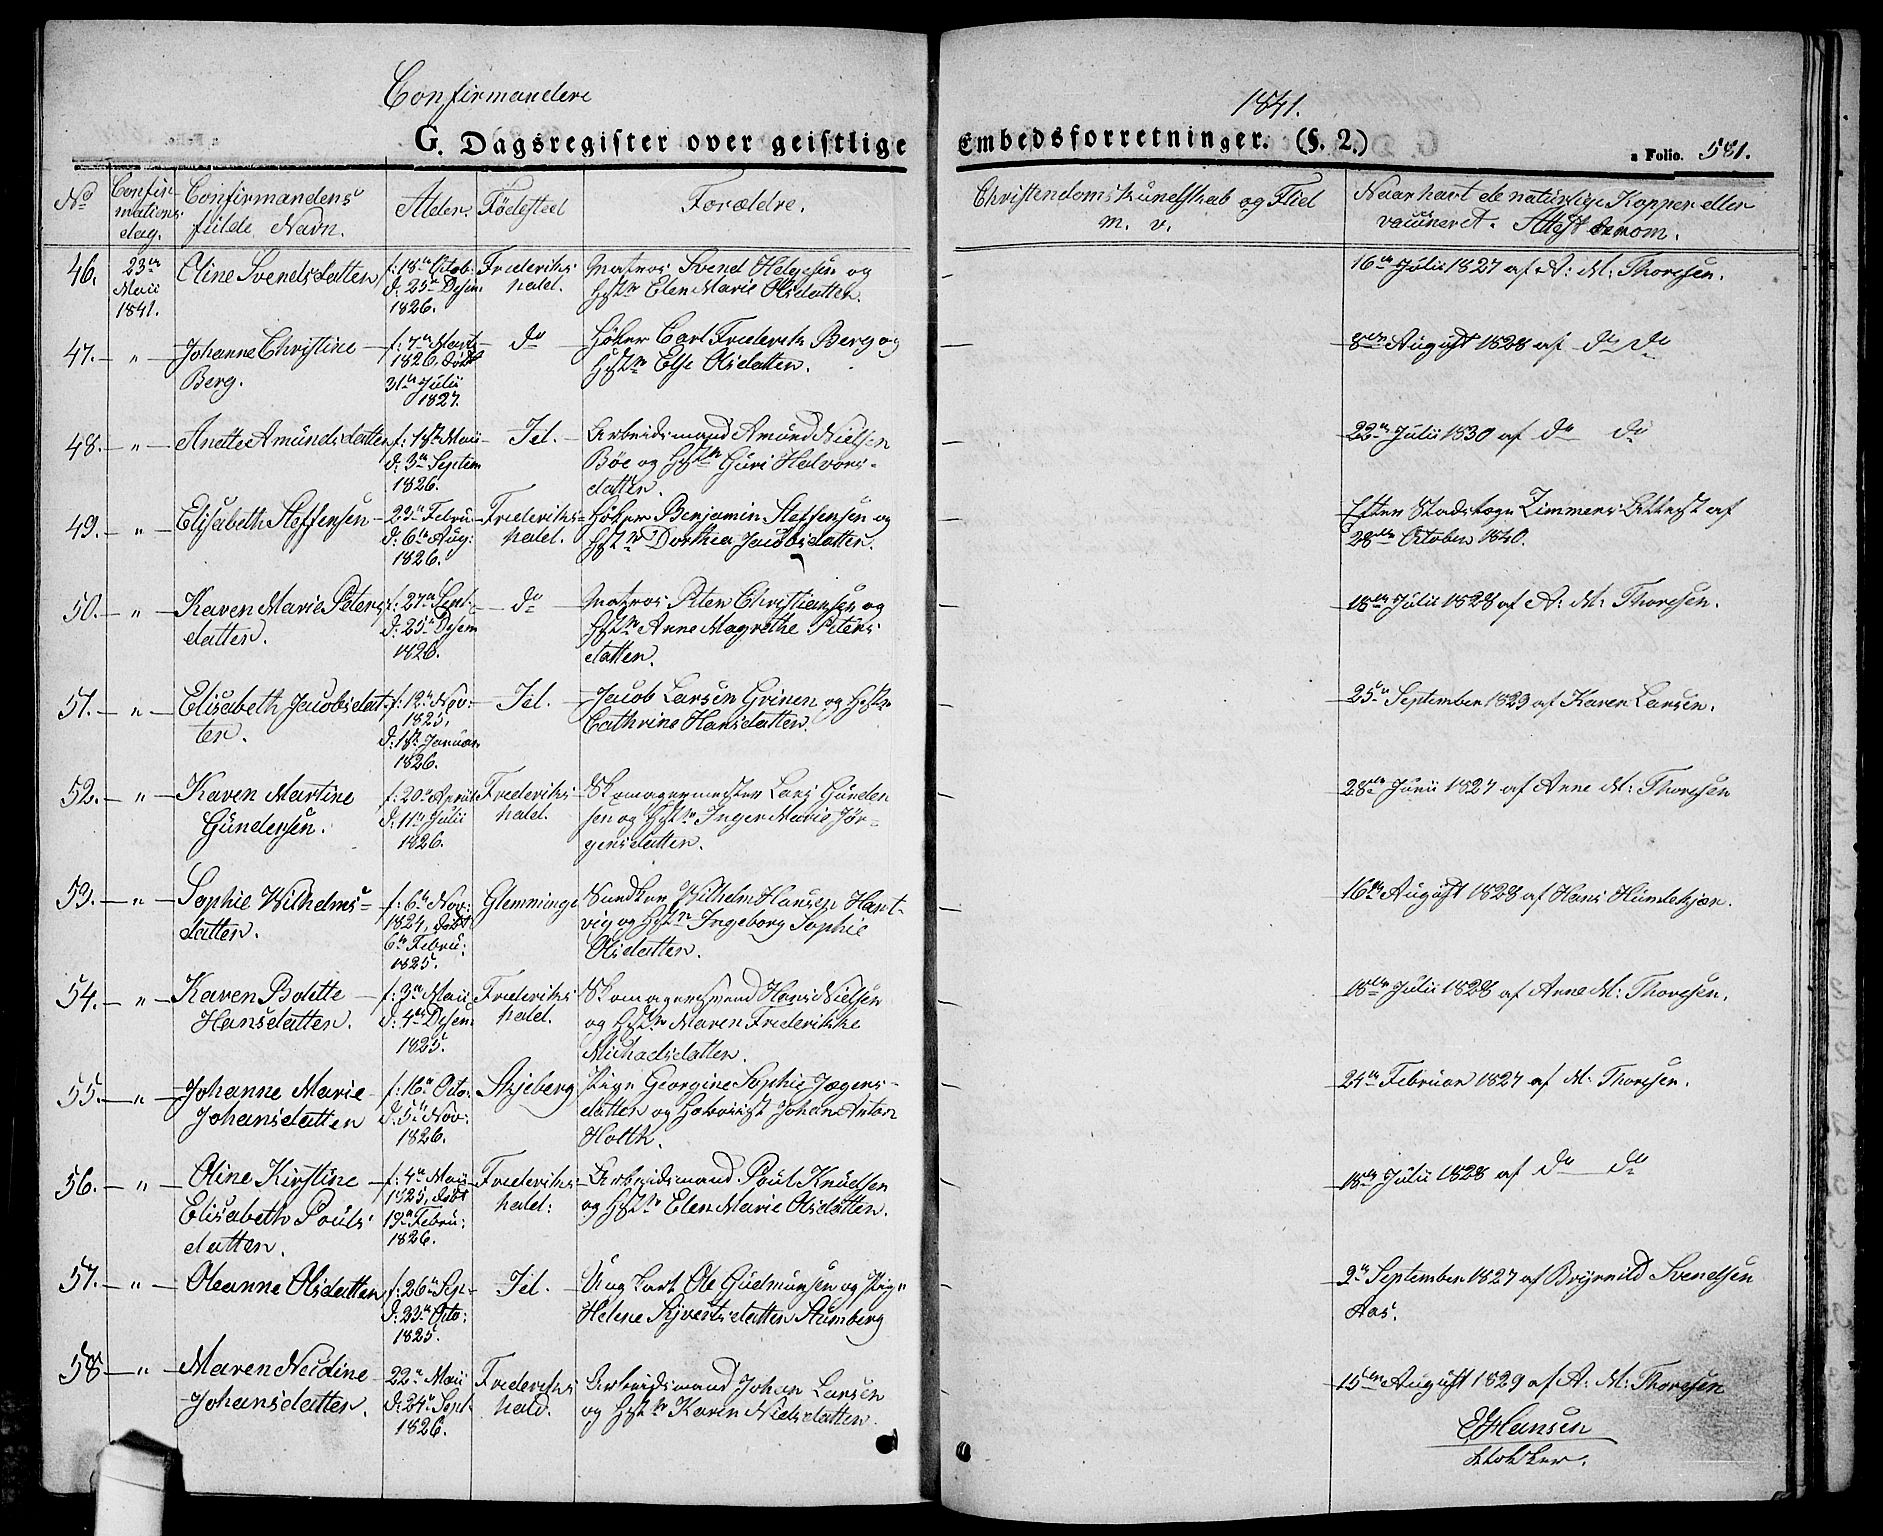 Confirmandere
1841.
G. Dagsregister over geistlige
Embedsforretninger. (§. 2.)
a Folio. 581.
No
Confir-
mations
dag.
Confirmandens
fulde Navn.
Alder.
Fødested
Forældre.
Christendomskundskab og Flid
m. v.
Naar havt de naturlige Kopper eller
vaccineret. Attest derom.
46.
23de
Maii
1841.
Oline Svendsdatter
f: 18de Octob:
d: 25de Desem:
1826.
Frederiks-
hald.
Matros Svend Helgesen og
Hstr. Elen Marie Olsdatter.
16de Julii 1827 af A: M: Thoresen.
47. — " —
Johanne Christine
Berg.
f: 7de Mart
1826. Døbt
31te Julii
1827.
do
Høker Carl Frederik Berg og
Hstr. Else Olsdatter.
8de August 1828 af do do
48. — " —
Anette Amundsdatter
f: 18de Maii
d: 3de Septem
1826.
Id.
Arbeidsmand Amund Nielsen
Bøe og Hstr. Guri Halvors-
datter.
22de Julii 1830 af do do
49. — " —
Elisabeth Steffensen
22de Febru
d: 6te Aug:
1826.
Frederiks-
hald.
Høker Benjamin Steffensen og
Hstr. Dorthea Jacobsdatter.
Efter Stadslæge Zimmers Attest af
28de October 1840.
50. — " —
Karen Marie Peters-
datter.
f: 27de Sept:
d: 25de Desem
1826.
do
Matros Peter Christiansen og
Hstr. Anne Magrethe Peters-
datter.
18de Julii 1828 af A: M: Thoresen.
51. — " —
Elisabeth Jacobsdat-
ter.
f: 12te Nov:
1825,
d: 18de Januar
1826.
Id.
Jacob Larsen Grinen og Hstr.
Cathrine Hansdatter.
25de September 1829 af Karen Larsen.
52. — " —
Karen Martine
Gundersen.
f: 20de April
d: 11te Julii
1826.
Frederiks-
hald.
Skomagermester Lars Gunder-
sen og Hstr. Inger Marie Jør-
gensdatter.
28de Junii 1827 af Anne M: Thoresen
53. — " —
Sophie Wilhelms-
datter.
f: 6te Nov:
1824, Døbt
6te Febru:
1825.
Glemminge
Snedker Wilhelm Hansen Hart-
vig og Hstr. Ingeborg Sophie
Olsdatter.
16de August 1828 af Hans Humlekjær.
54. — " —
Karen Bolette
Hansdatter.
f: 3de Maii
d: 4de Desem:
1825.
Frederiks
hald.
Skomagersvend Hans Nielsen
og Hstr. Maren Frederikke
Michaelsdatter.
18de Julii 1828 af Anne M: Thoresen.
55. — " —
Johanne Marie
Johansdatter
f: 16de Octo:
d: 5te Nov:
1826.
Skjeberg
Pige Georgine Sophie Jægers-
datter og Hoboiist Johan Anton
Holth.
24de Februar 1827 af M: Thoresen.
56. — " —
Oline Kirstine
Elisabeth Pouls-
datter.
f: 4de Maii
1825, Døbt
19de Febru:
1826.
Frederiks-
hald:
Arbeidsmand Poul Knudsen
og Hstr. Elen Marie Olsdatter.
18de Julii 1828 af do do
57. — " —
Oleanne Olsdatter
f: 26de Sep-
d: 23de Octo:
1825.
Id.
Ungkarl Ole Gudmunsen og Pige
Helene Syvertsdatter Stumberg
2de September 1827 af Brynild Svendsen
Aas.
58 — " —
Maren Neidine
Johansdatter.
22de Maii
d: 24de Sept
1826.
Frederiks
hald.
Arbeidsmand Johan Larsen
og Hstr. Karen Nielsdatter.
15de August 1829 af A: M: Thoresen
Hansen
Klokker.